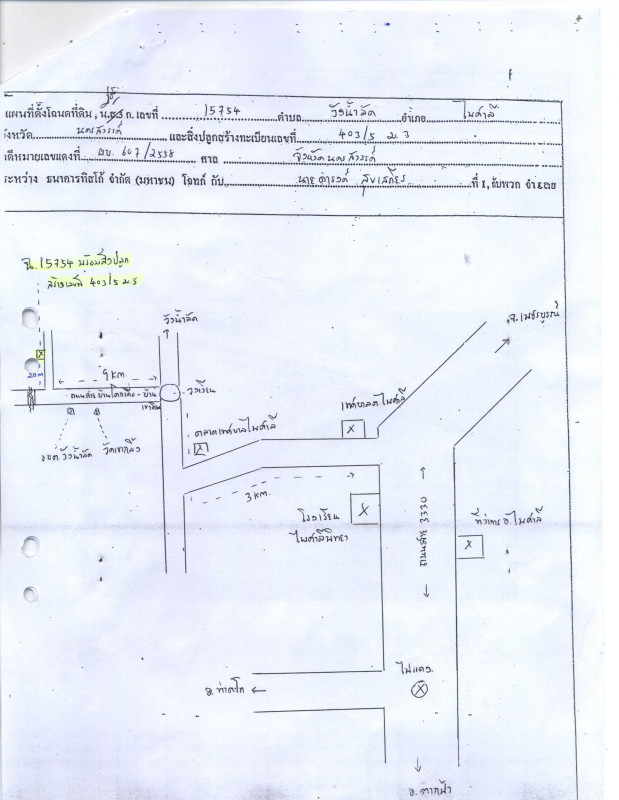 แผนที่ตั้งโฉนดที่ดิน, น.ส.3 ก. เลขที่ 15754 ตำบล วังน้ำลัด อำเภอ ไพศาลี
จังหวัด นครสวรรค์ และสิ่งปลูกสร้างทะเบียนเลขที่ 403/5 ม.3
คดีหมายเลขแดงที่ ผบ. 607/2558 ศาล จังหวัดนครสวรรค์
ระหว่าง ธนาคารทิสโก้ จำกัด (มหาชน) โจทก์ กับ นายดำรงค์ ที่ 1, กับพวก จำเลย
ฉ. 15754 พร้อมสิ่งปลูก
สร้างเลขที่ 403/5 ม.5
วังน้ำลัด
จ.เพชรบูรณ์
20 m
9 km.
วงเวียน
เทศบาลต.ไพศาลี
ตลาดเทศบาลไพศาลี
อบต.วังน้ำลัด
3 km.
โรงเรียน
ไพศาลีพิทยา
ถนนสาย 3330
ที่ว่าการ อ.ไพศาลี
ไฟแดง
อ.ท่าตะโก
อ.ตากฟ้า